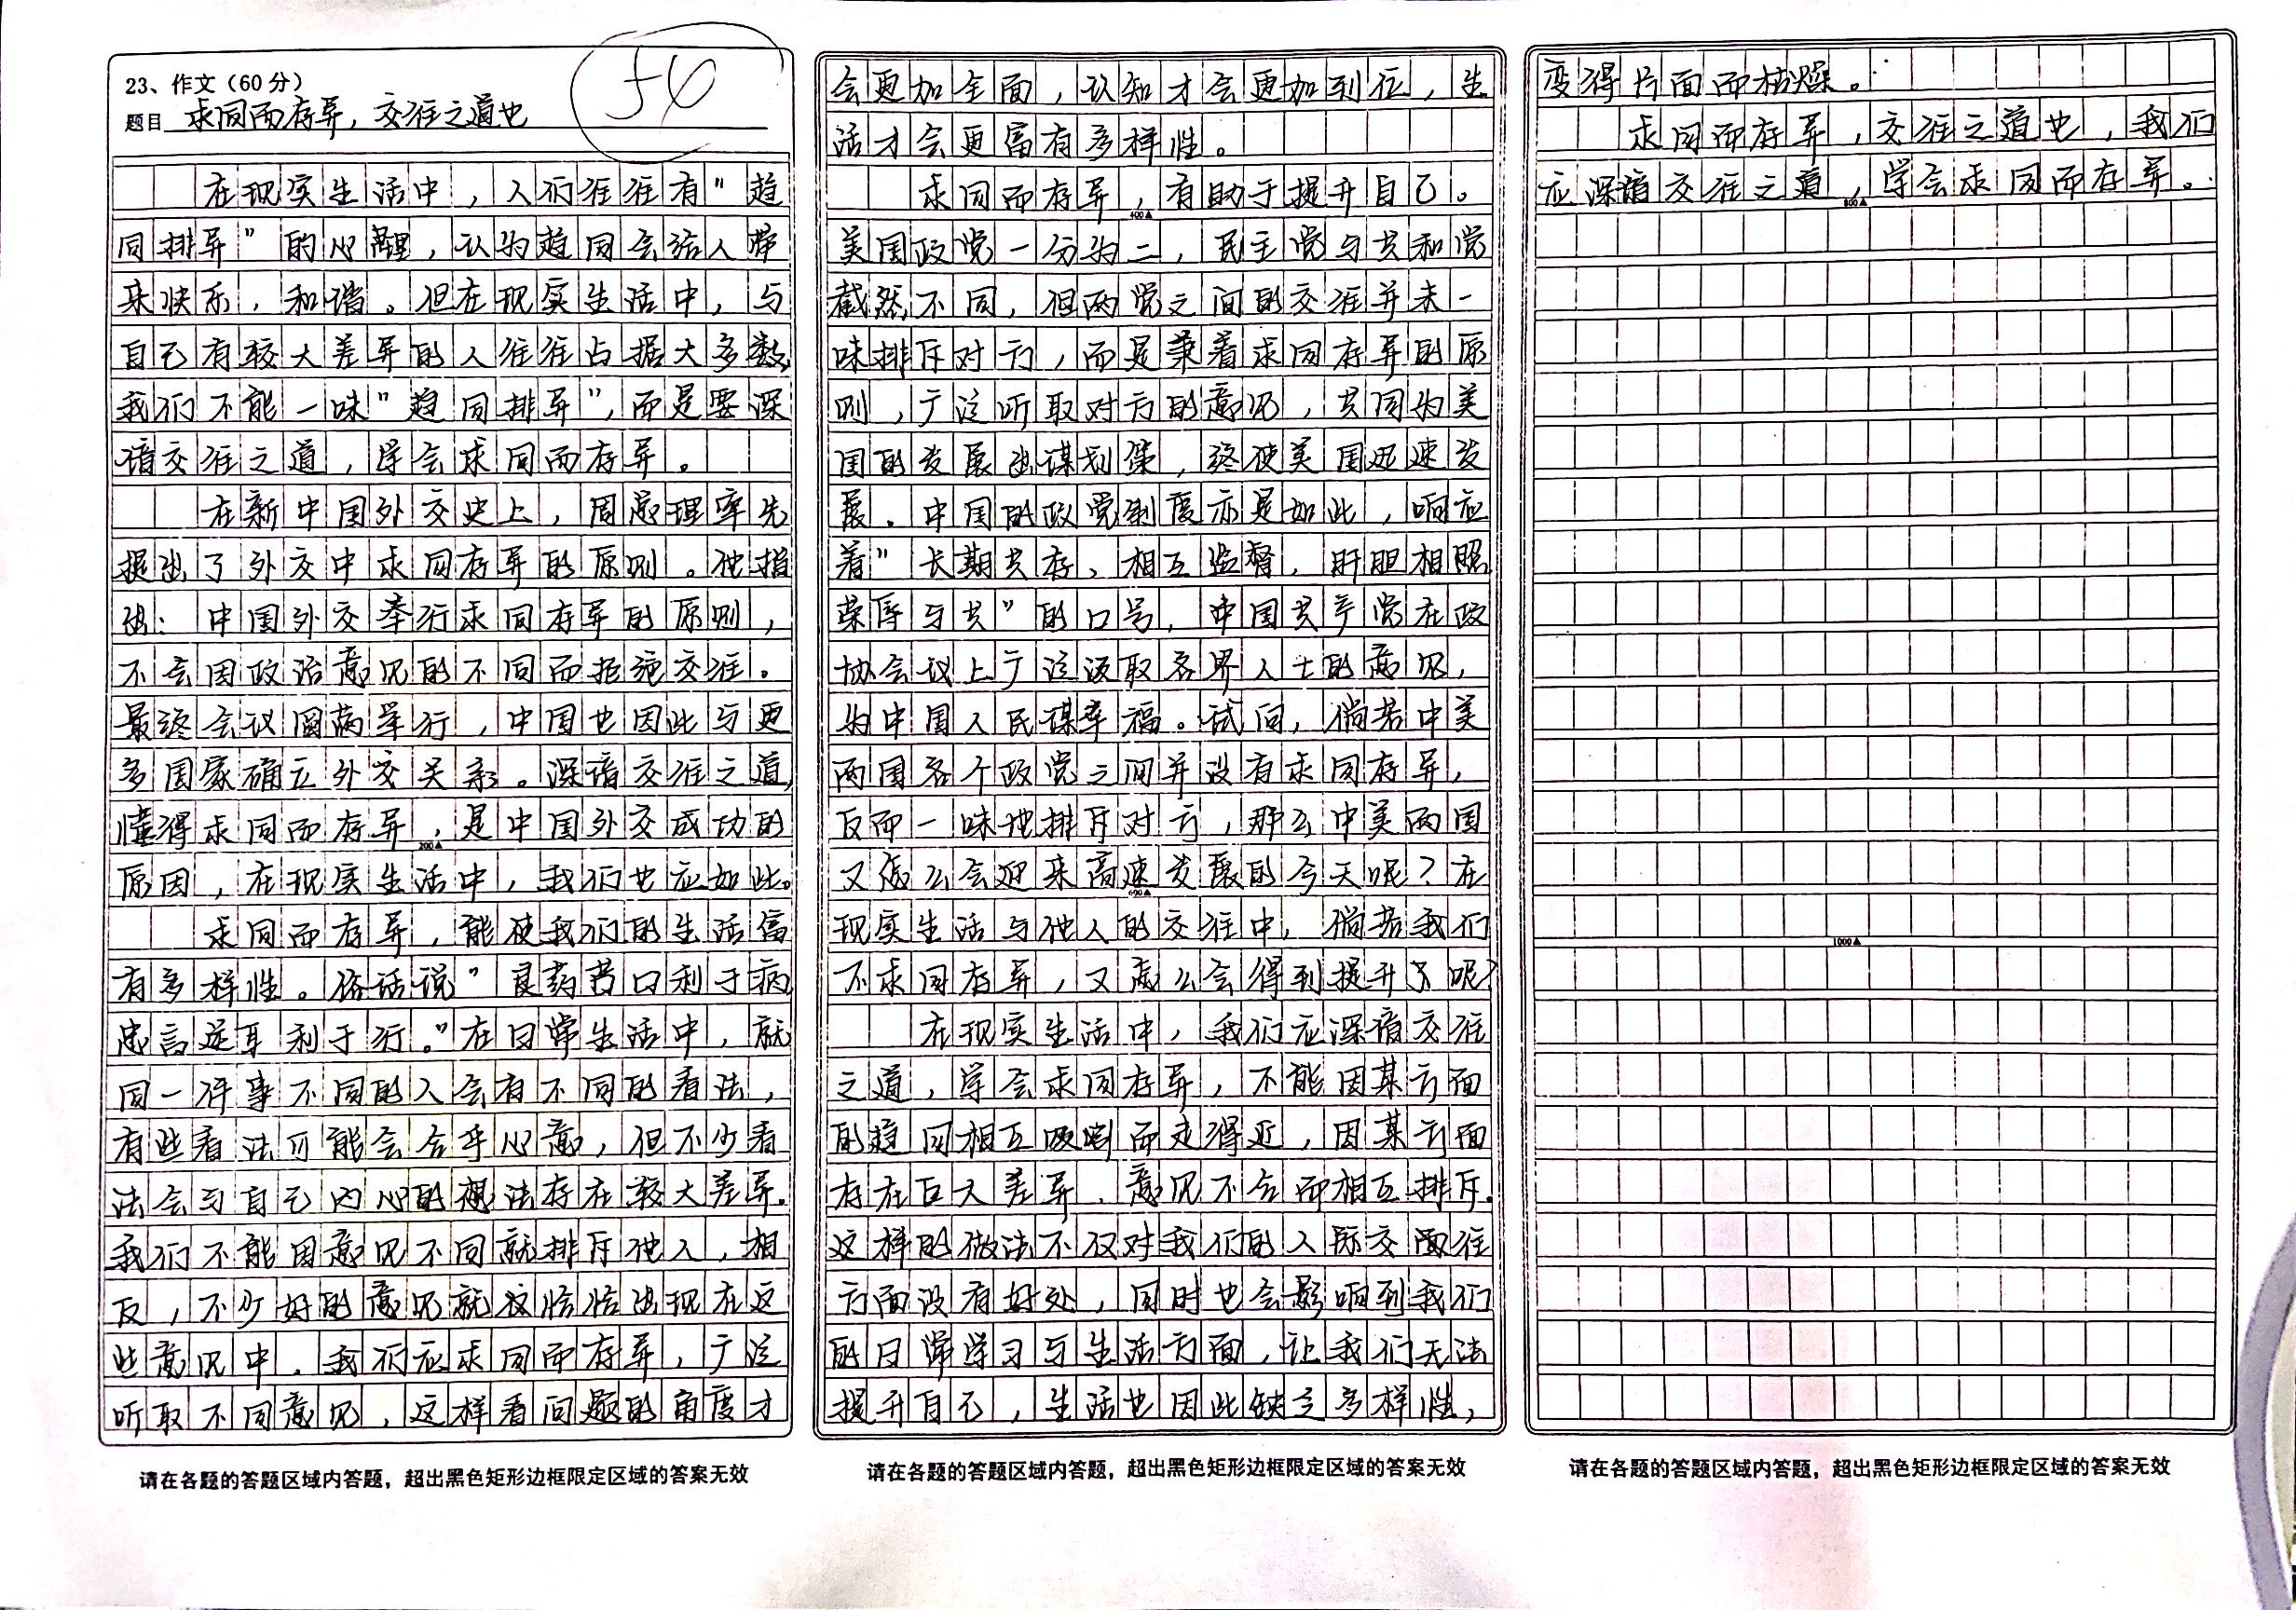 23、作文（60分）
54
题目 求同而存异，交往之道也
在现实生活中，人们往往有"趋
同排异"的心理，认为趋同会给人带
来快乐，和谐。但在现实生活中，与
自己有较大差异的人往往占据大多数，
我们不能一味"趋同排异"，而是要深
谙交往之道，学会求同而存异。
在新中国外交史上，周总理率先
提出了外交中求同存异的原则。他指
出：中国外交奉行求同存异的原则，
不会因政治意见的不同而拒绝交往。
最终会议圆满举行，中国也因此与更
多国家确立外交关系。深谙交往之道，
懂得求同而存异，是中国外交成功的
200▲
原因，在现实生活中，我们也应如此。
求同而存异，能使我们的生活富
有多样性。俗话说"良药苦口利于病，
忠言逆耳利于行。"在日常生活中，就
同一件事不同的人会有不同的看法，
有些看法可能会合乎心意，但不少看
法会与自己内心的想法存在较大差异。
我们不能因意见不同就排斥他人，相
反，不少好的意见就恰恰出现在这
些意见中，我们应求同而存异，广泛
听取不同意见，这样看问题的角度才
请在各题的答题区域内答题，超出黑色矩形边框限定区域的答案无效
会更加全面，认知才会更加到位，生
活才会更富有多样性。
求同而存异，有助于提升自己。
400▲
美国政党一分为二，民主党与共和党
截然不同，但两党之间的交往并未一
味排斥对方，而是秉着求同存异的原
则，广泛听取对方的意见，共同为美
国的发展出谋划策，终使美国迅速发
展。中国的政党制度亦是如此，响应
着"长期共存、相互监督，肝胆相照，
荣辱与共"的口号，中国共产党在政
协会议上广泛汲取各界人士的意见，
为中国人民谋幸福。试问，倘若中美
两国各个政党之间并没有求同存异，
反而一味地排斥对方，那么中美两国
又怎么会迎来高速发展的今天呢？在
600▲
现实生活与他人的交往中，倘若我们
不求同存异，又怎么会得到提升了呢？
在现实生活中，我们应深谙交往
之道，学会求同存异，不能因某方面
的趋同相互吸引而走得近，因某方面
存在巨大差异、意见不合而相互排斥。
这样的做法不仅对我们的人际交往
方面没有好处，同时也会影响到我们
的日常学习与生活方面，让我们无法
提升自己，生活也因此缺乏多样性，
请在各题的答题区域内答题，超出黑色矩形边框限定区域的答案无效
变得片面而枯燥。
求同而存异，交往之道也，我们
应深谙交往之道，学会求同而存异。
800▲
1000▲
请在各题的答题区域内答题，超出黑色矩形边框限定区域的答案无效